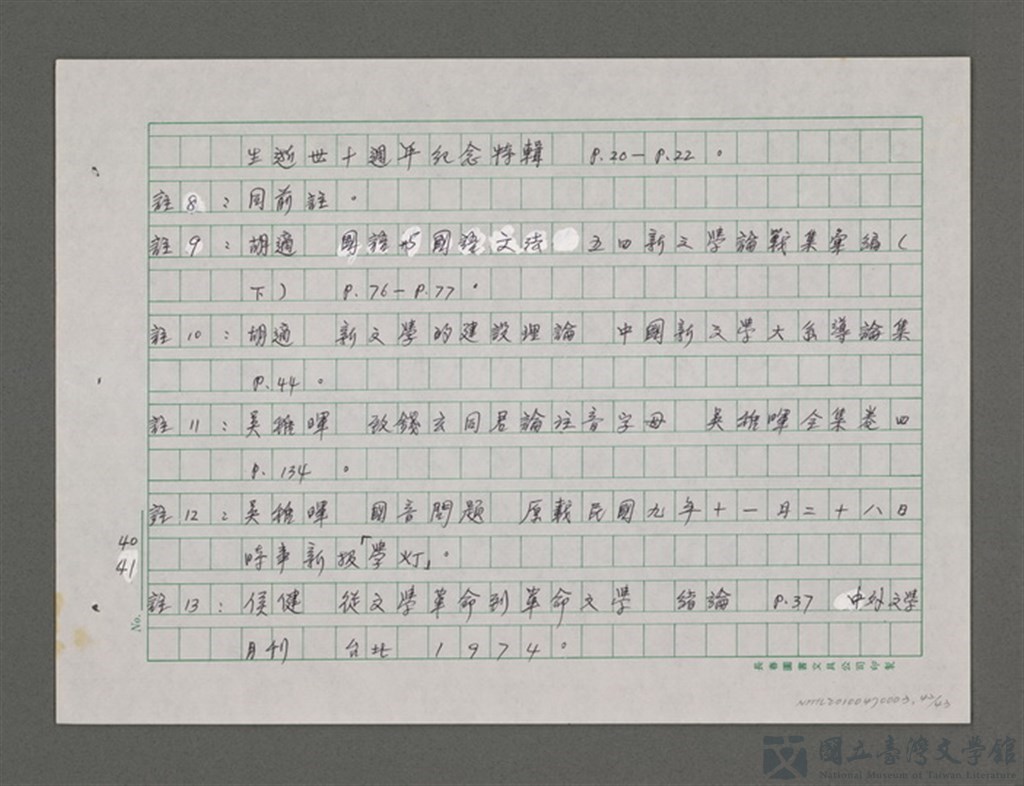 生逝世十週年紀念特輯 P.20－P.22。
註8：同前註。
註9：胡適 國語与國語文法 五四新文學論戰集彙編（
下） P.76－P.77。
註10：胡適 新文學的建設理論 中國新文學大系導論集
P.44。
註11：吳稚暉 致錢玄同君論注音字母 吳稚暉全集卷四
P.134。
註12：吳稚暉 國音問題 原載民國九年十一月二十八日
時事新报「學灯」。
註13：侯健 從文學革命到革命文學 緒論 P.37 中外文學
月刊 台北 1974。
40
41
No.
長春圖書文具公司印製
NMTL20100470003.42/43
國立臺灣文學館
National Museum of Taiwan Literature